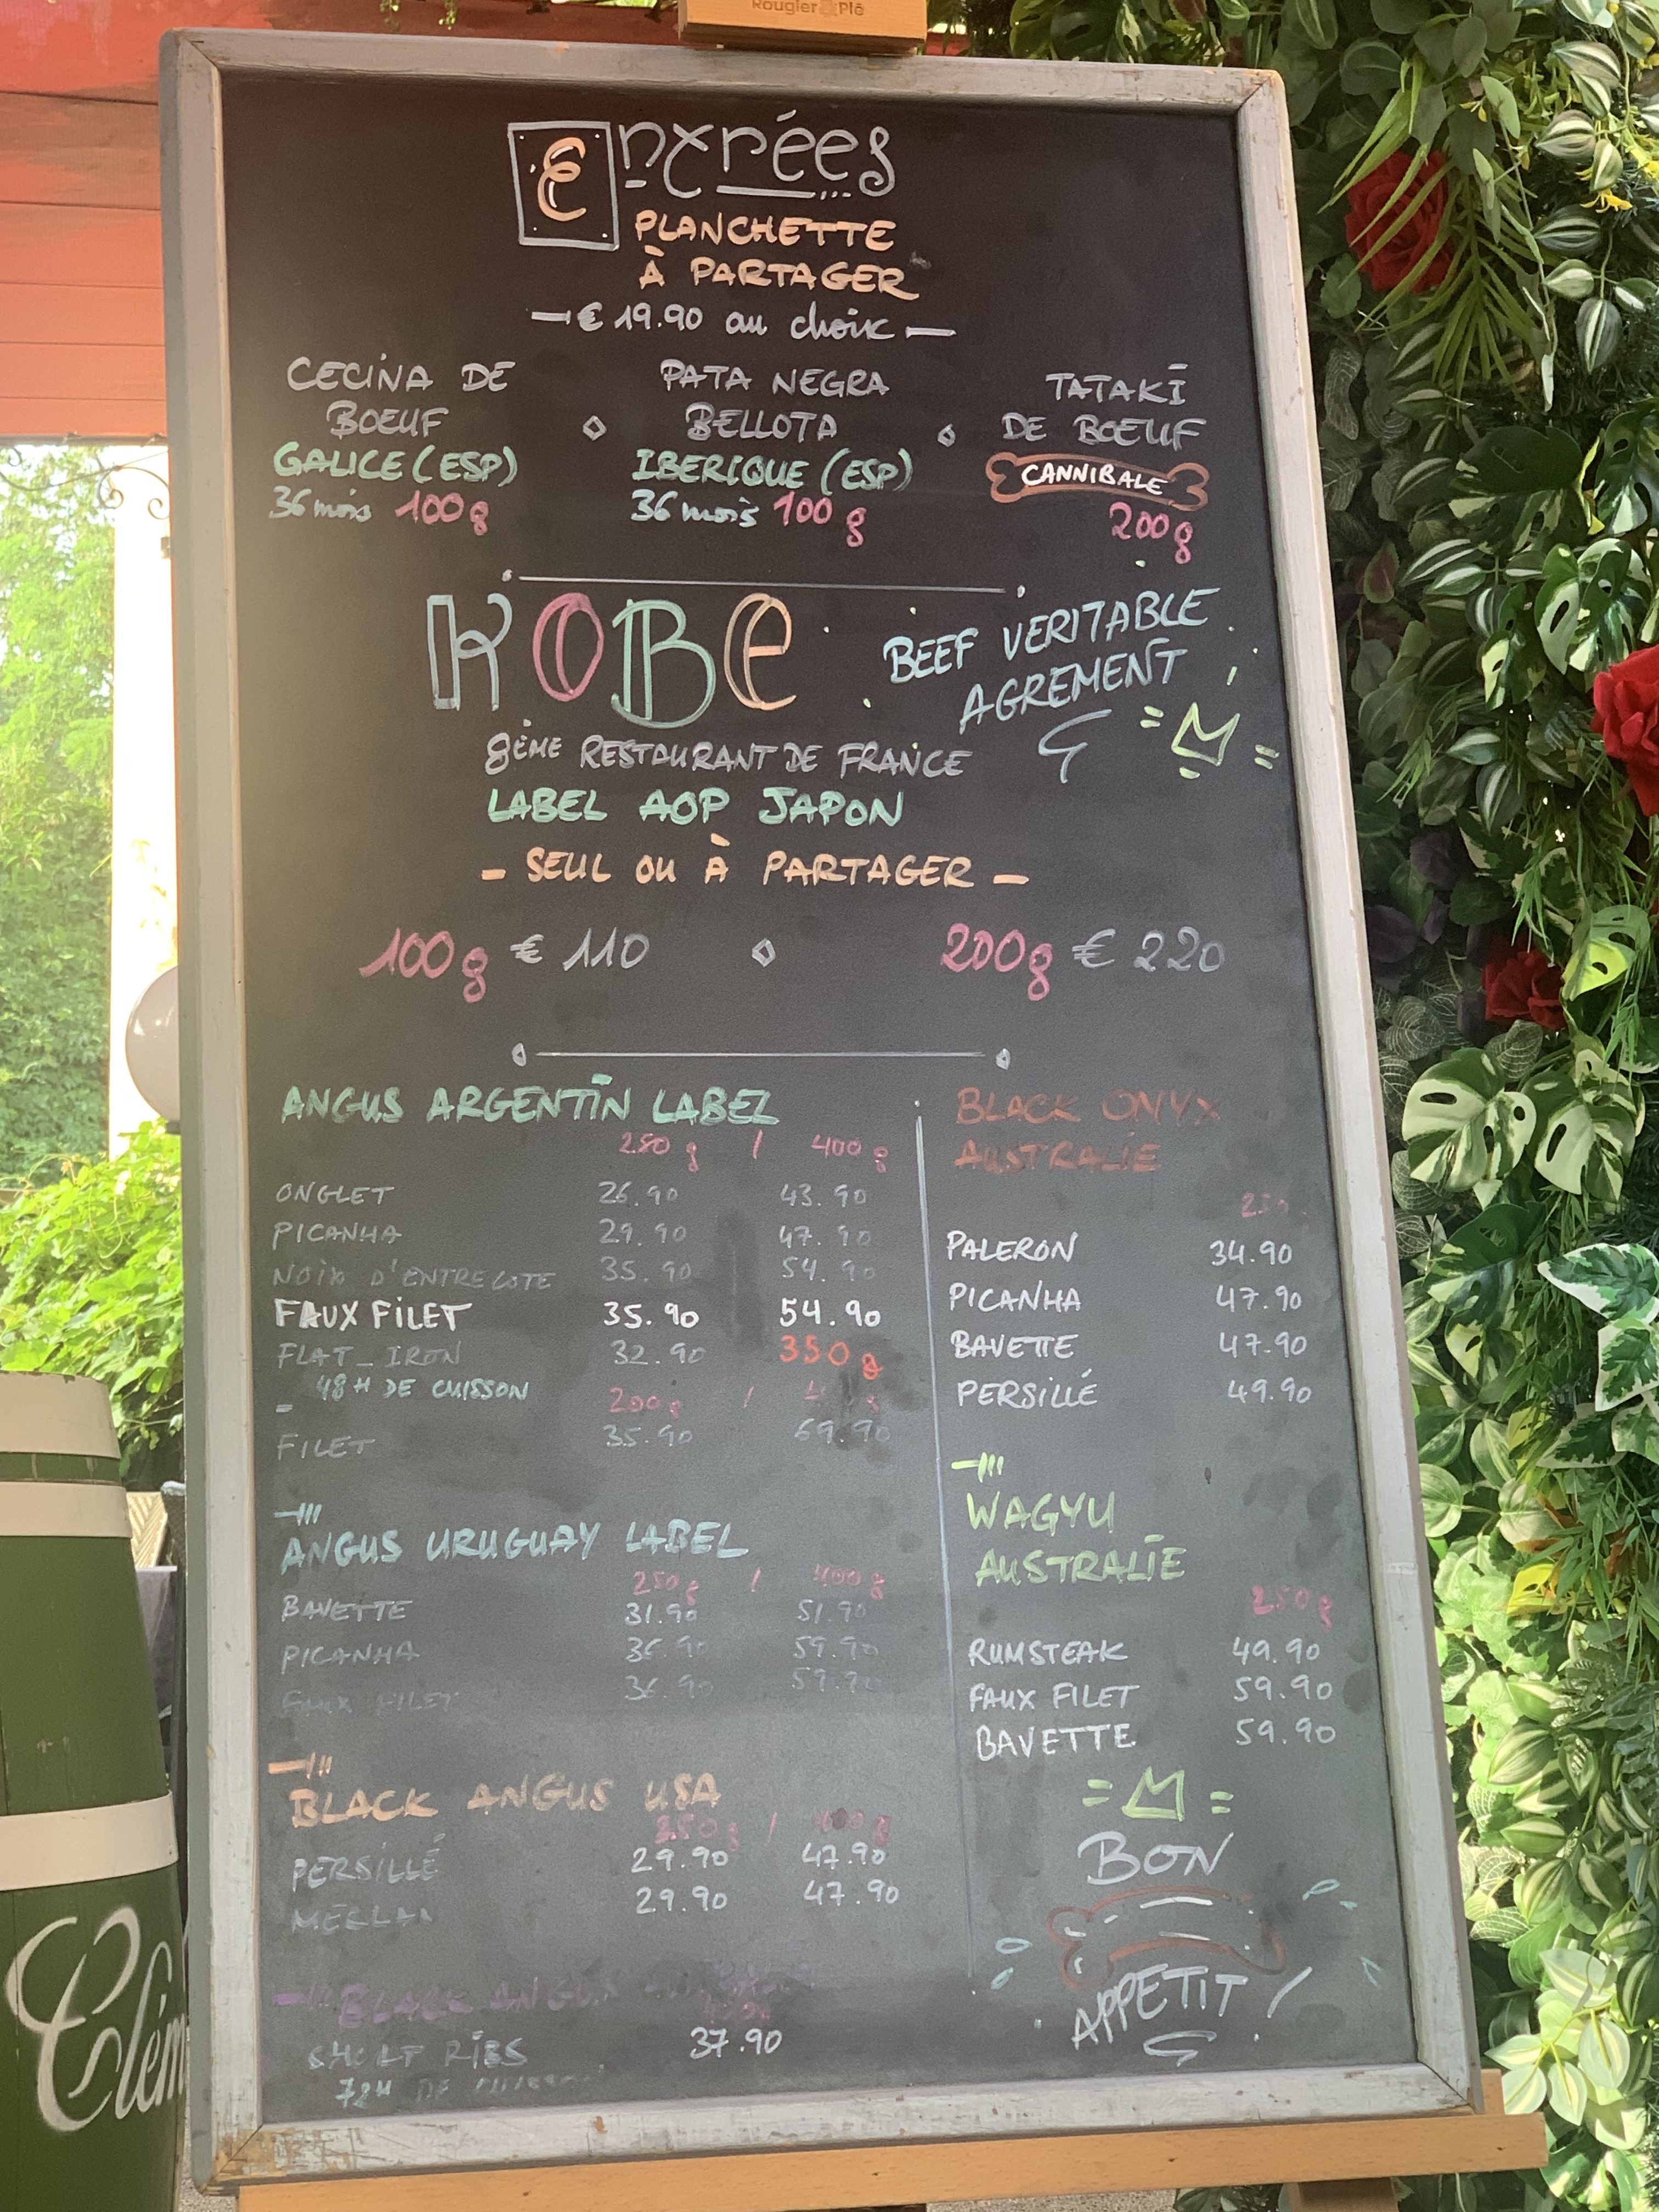 Rougier & Plé
Entrées
PLANCHETTE
À PARTAGER
€ 19.90 au choix
CECINA DE
BOEUF
GALICE (ESP)
36 mois 100g
PATA NEGRA
BELLOTA
IBERIQUE (ESP)
36 mois 100g
TATAKI
DE BOEUF
CANNIBALE
200g
KOBE
BEEF VERITABLE
AGREMENT
8ÈME RESTAURANT DE FRANCE
LABEL AOP JAPON
- SEUL OU À PARTAGER -
100g € 110
200g € 220
ANGUS ARGENTIN LABEL
250g / 400g
ONGLET 26.90 43.90
PICANHA 29.90 47.90
NOIX D'ENTRECOTE 35.90 54.90
FAUX FILET 35.90 54.90
FLAT_IRON 32.90 350g
48H DE CUISSON
200g /
FILET 35.90 69.90
ANGUS URUGUAY LABEL
250g / 400g
BAVETTE 31.90 51.90
PICANHA 36.90 59.90
FAUX FILET 36.90 59.90
BLACK ANGUS USA
250g / 400g
PERSILLÉ 29.90 47.90
MERLAN 29.90 47.90
BLACK ANGUS
SHORT RIBS 37.90
72H DE
BLACK ONYX
AUSTRALIE
PALERON 34.90
PICANHA 47.90
BAVETTE 47.90
PERSILLÉ 49.90
WAGYU
AUSTRALIE
250g
RUMSTEAK 49.90
FAUX FILET 59.90
BAVETTE 59.90
BON
APPETIT !
Clém